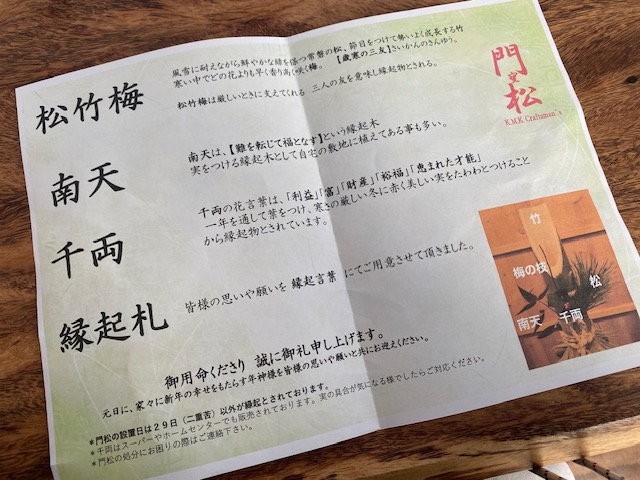 松竹梅
風雪に耐えながら鮮やかな緑を保つ常磐の松、節目をつけて勢いよく成長する竹
寒い中でどの花よりも早く香り高く咲く梅。【歳寒の三友】さいかんのさんゆう。
松竹梅は厳しいときに支えてくれる 三人の友を意味し縁起物とされる。
南天
南天は、【難を転じて福となす】という縁起木
実をつける縁起木として自宅の敷地に植えてある事も多い。
千両
千両の花言葉は、「利益」「富」「財産」「裕福」「恵まれた才能」
一年を通して葉をつけ、寒さの厳しい冬に赤く美しい実をたわわとつけること
から縁起物とされています。
縁起札
皆様の思いや願いを 縁起言葉 にてご用意させて頂きました。
御用命くださり 誠に御礼申し上げます。
元日に、家々に新年の幸せをもたらす年神様を皆様の思いや願いと共にお迎えください。
*門松の設置日は29日(二重苦)以外が縁起とされております。
*千両はスーパーやホームセンターでも販売されております。実の具合が気になる様でしたらご対応ください。
*門松の処分にお困りの際はご連絡下さい。
門松
K.M.K Craftsman`s
竹
梅の枝
松
南天
千両